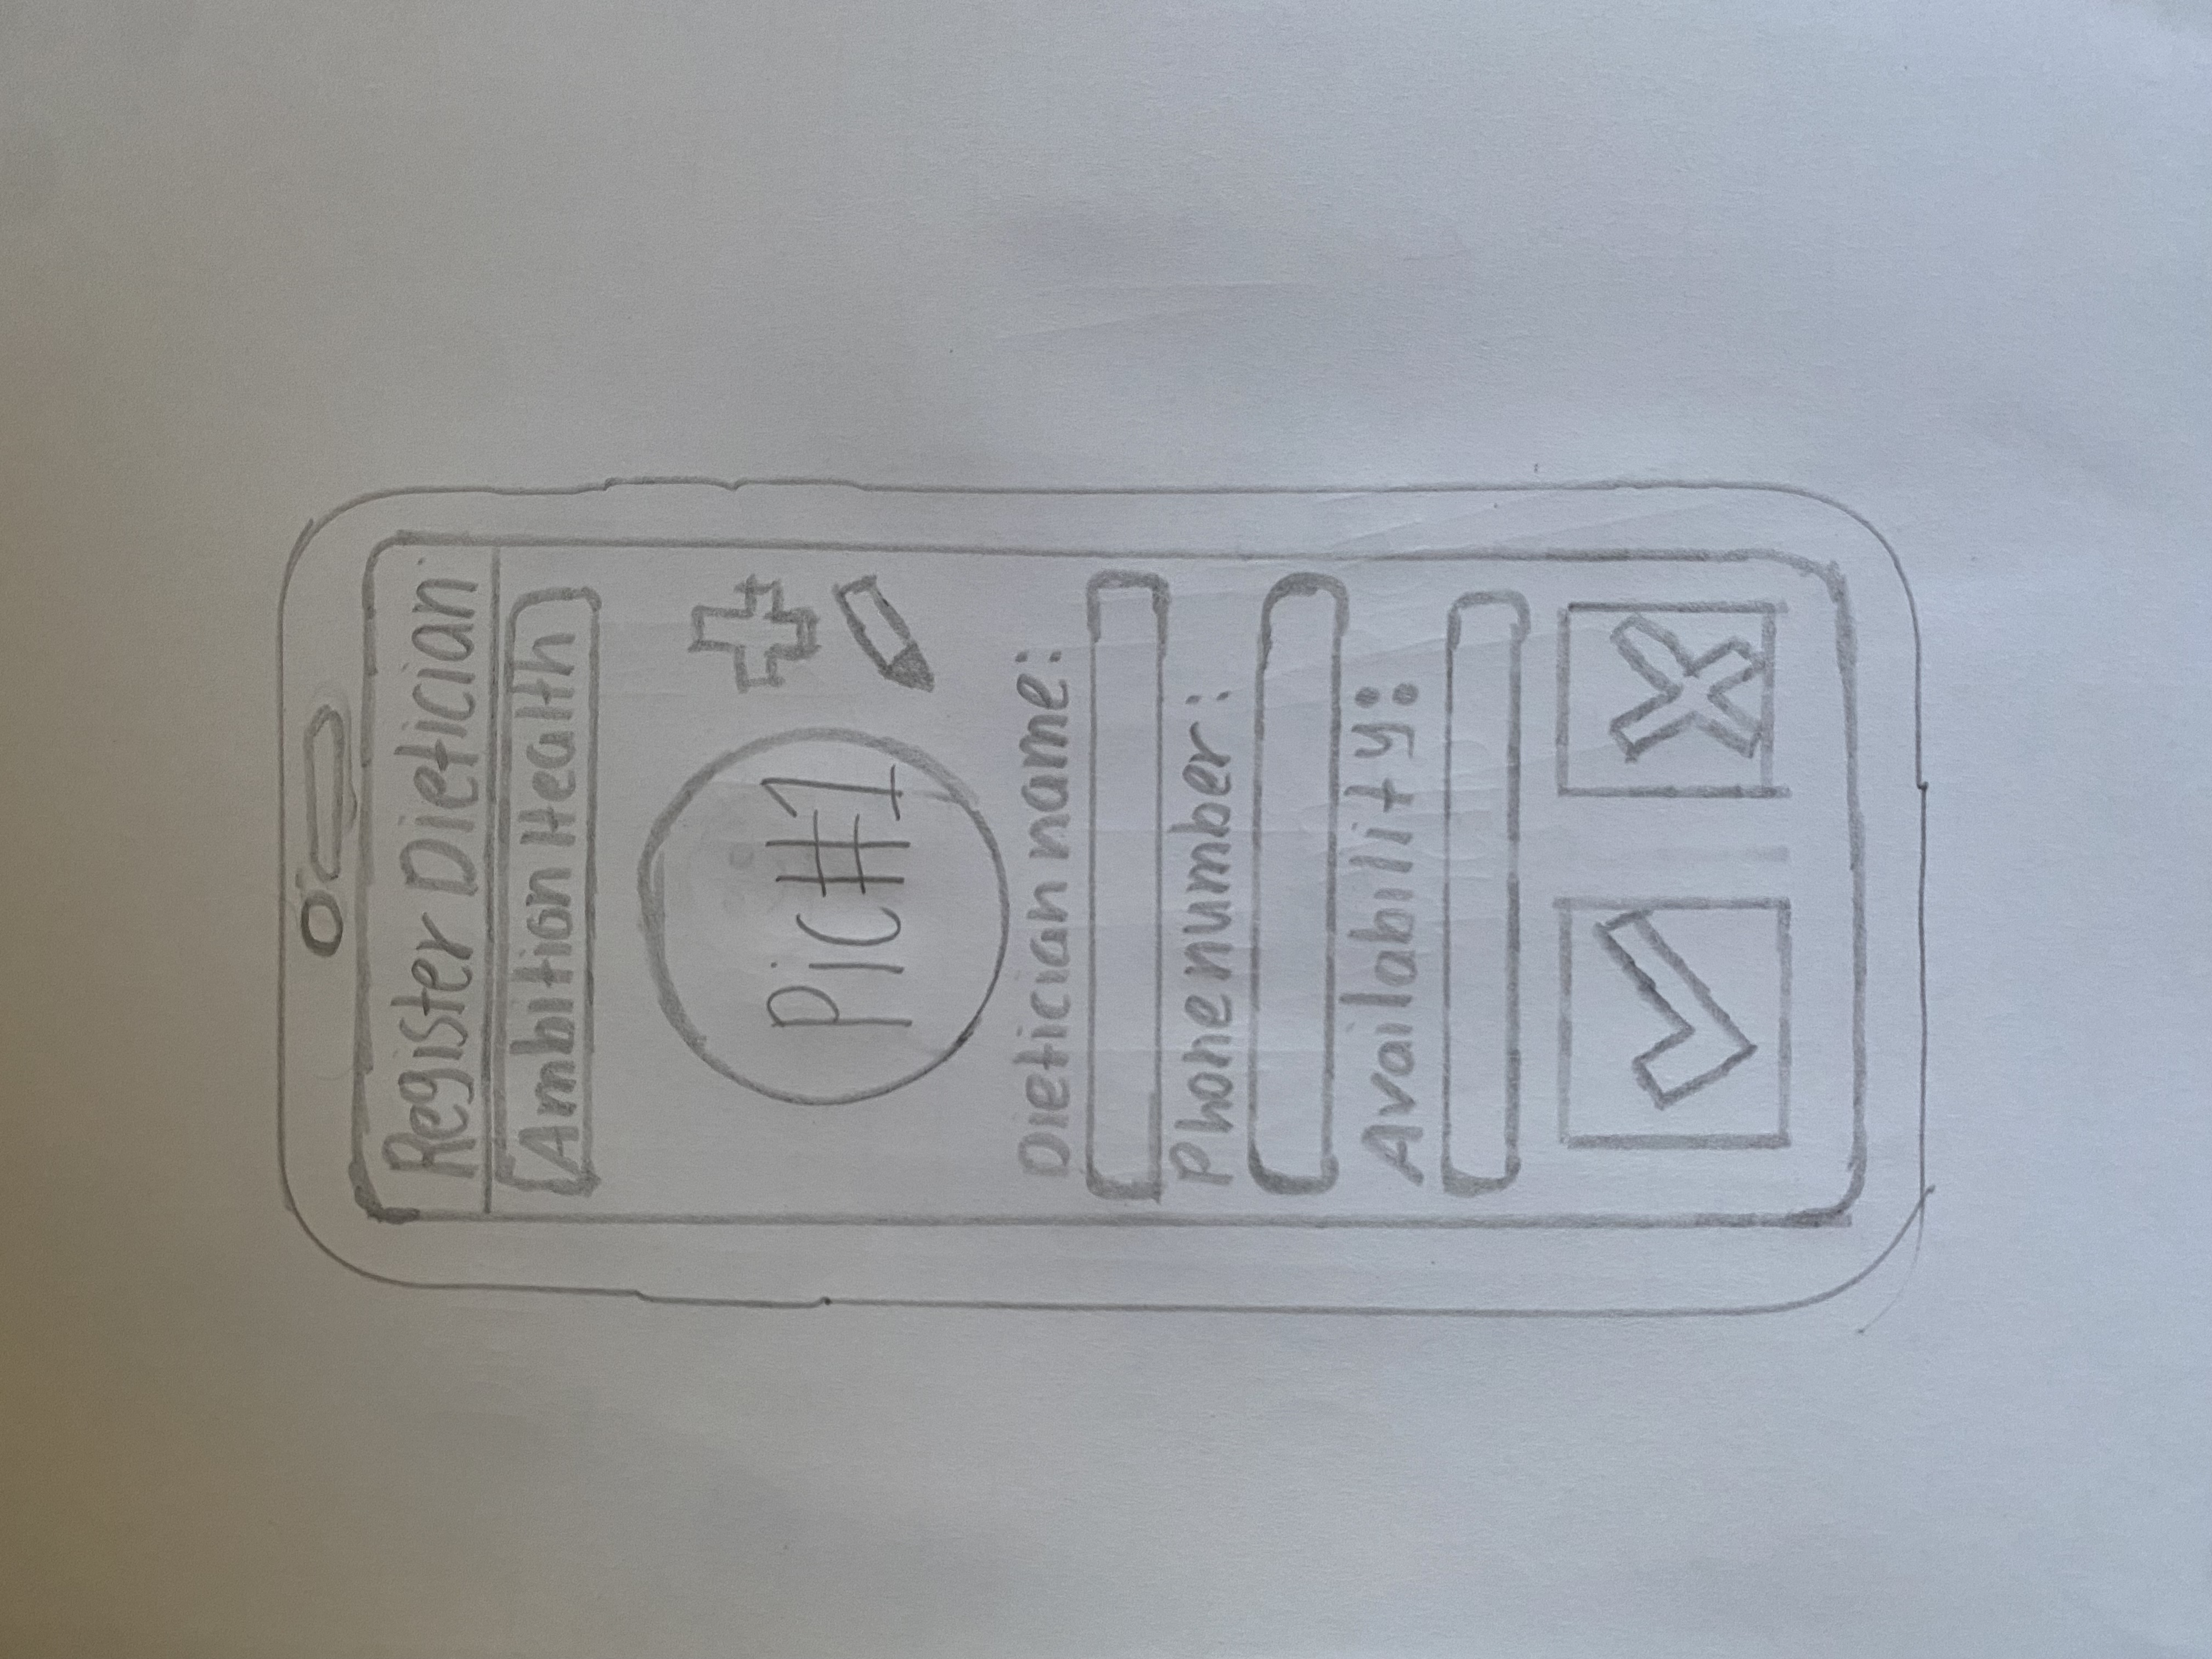 Register Dietician
Ambition Health
Pic#1
Dietician name:
Phone number:
Availability: